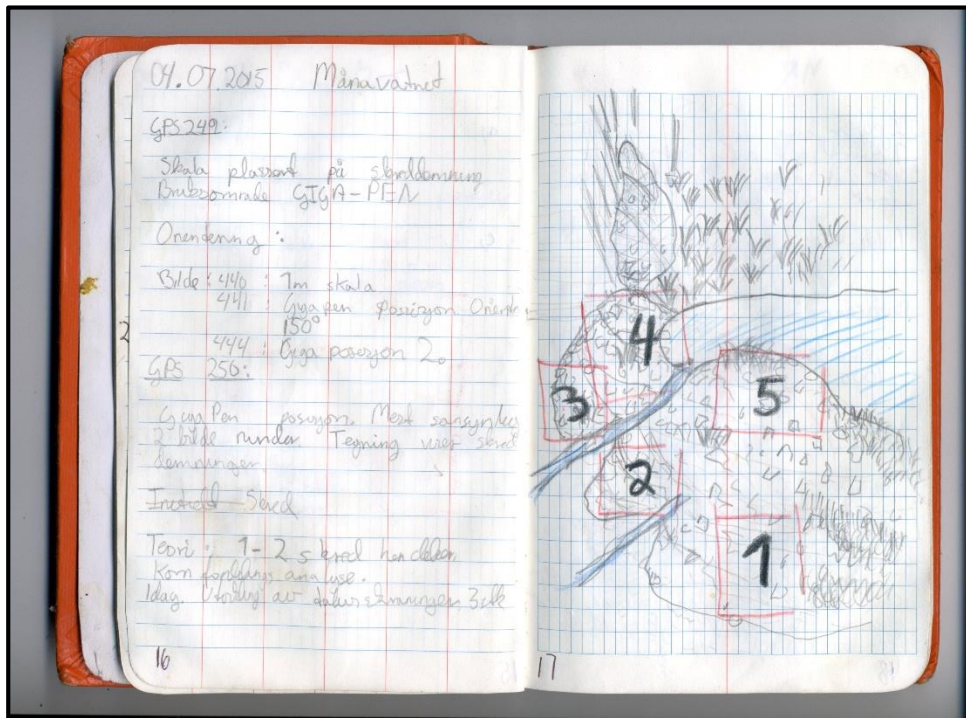 04.07.2015 Månavatnet
GPS 249:
Skala plassert på skreddemning
Bruksområde GIGA-PEN
Orientering :
Bilde : 440 : 1m skala
441 : Giga Pen posisjon Orienter
150°
444 : Giga posisjon 2.
GPS 250:
Giga Pen posisjon. Mest sansynlig
2 bilde runder Tegning viser skred
demningen
Skred
Teori : 1-2 skred hendelser
Korn fordelings analyse.
Idag. av 3stk
16
4
3
5
2
1
17